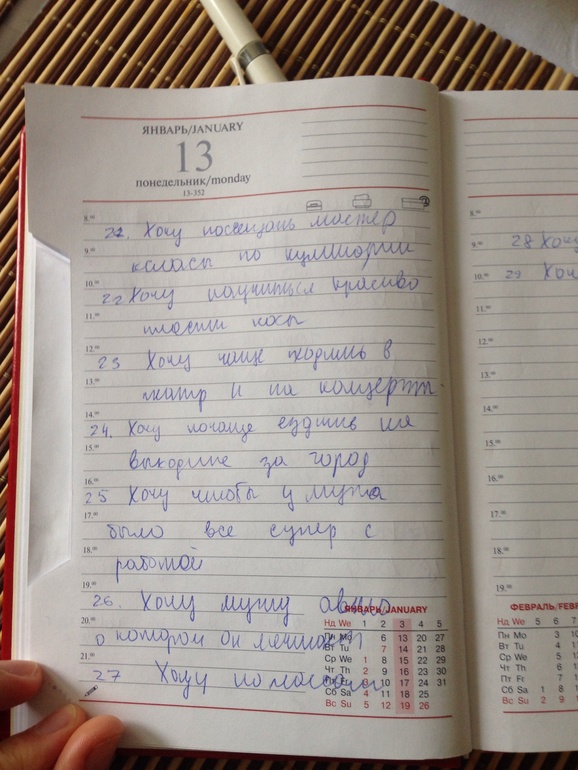 ЯНВАРЬ/JANUARY
13
понедельник/monday
13-352
8.00
21. Хочу посещать мастер
9.00
классы по кулинарии
10.00
22 Хочу научиться красиво
11.00
плести косы
12.00
23 Хочу чаще ходить в
13.00
театр и на концерты
14.00
24. Хочу почаще ездить на
15.00
выходные за город
16.00
25 Хочу чтобы у мужа
17.00
было все супер с
18.00
работой
19.00
26. Хочу мужу авто
20.00
о котором он мечтает
21.00
27 Хочу
ЯНВАРЬ/JANUARY
Нд We 1 2 3 4 5
Пн Mo 6 13 20 27
Вт Tu 7 14 21 28
Ср We 1 8 15 22 29
Чт Th 2 9 16 23 30
Пт Fr 3 10 17 24 31
Сб Sa 4 11 18 25
Вс Su 5 12 19 26
8.00
9.00
28 Хочу
10.00
29 Хоч
11.00
12.00
13.00
14.00
15.00
16.00
17.00
18.00
19.00
ФЕВРАЛЬ/FEB
Нд We 5 6
Пн Mo 3
Вт Tu 4
Ср We 5
Чт Th 6
Пт Fr 7
Сб Sa 1 8
Вс Su 2 9